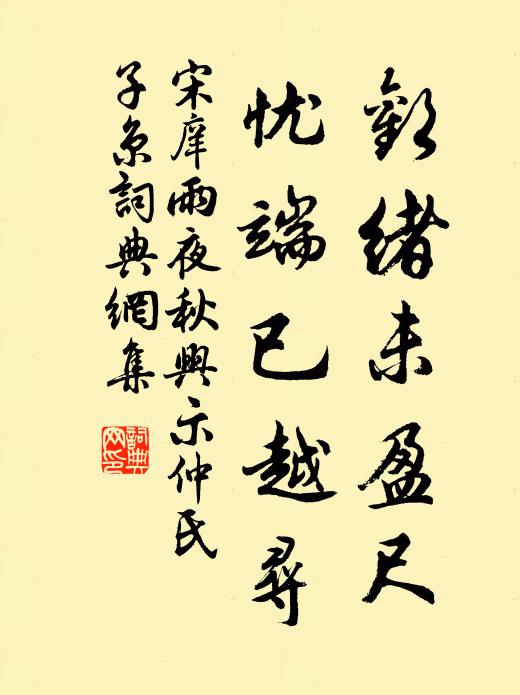 歡緒未盈尺
忧端已越尋
宋庠雨夜秋興示仲氏
子京詞典網集
詞典網印